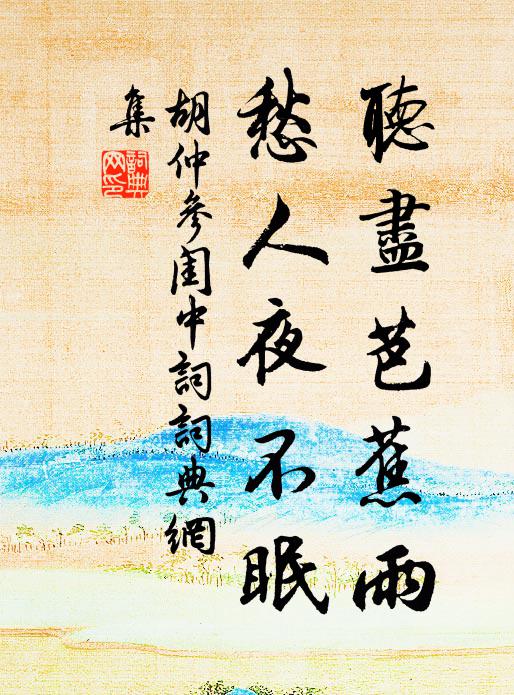 聽盡芭蕉雨
愁人夜不眠
胡仲參閨中詞詞典網
集
詞典
网印